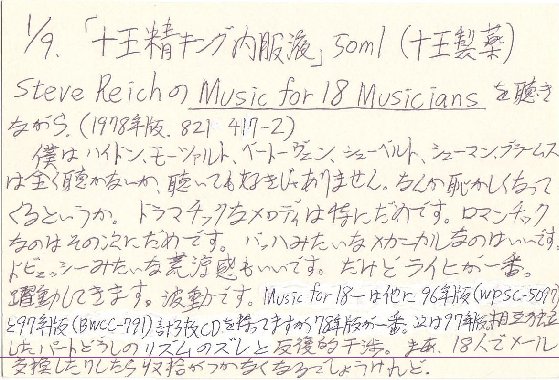 1/9.「十王精キング内服液」50ml(十王製薬)
Steve Reichの Music for 18 Musicians を聴き
ながら。(1978年版. 821 417-2)
僕はハイドン、モーツァルト、ベートーヴェン、シューベルト、シューマン、ブラームス
は全く聴かないか、聴いても好きじゃありません。なんか恥かしくなって
くるというか。ドラマチックなメロディは特にだめです。ロマンチック
なのはその次にだめです。バッハみたいなメカニカルなのはいいです。
ドビュッシーみたいな荒涼感もいいです。だけどライヒが一番。
躍動してきます。波動です。Music for 18-は他に96年版(WPSC-5097)
と97年版(BWCC-791)計3枚CDを持ってますが78年版が一番。次は97年版。相互独立
したパートどうしのリズムのズレと反復的干渉。まぁ、18人でメール
交換したりしたら収拾がつかなくなるでしょうけれど。